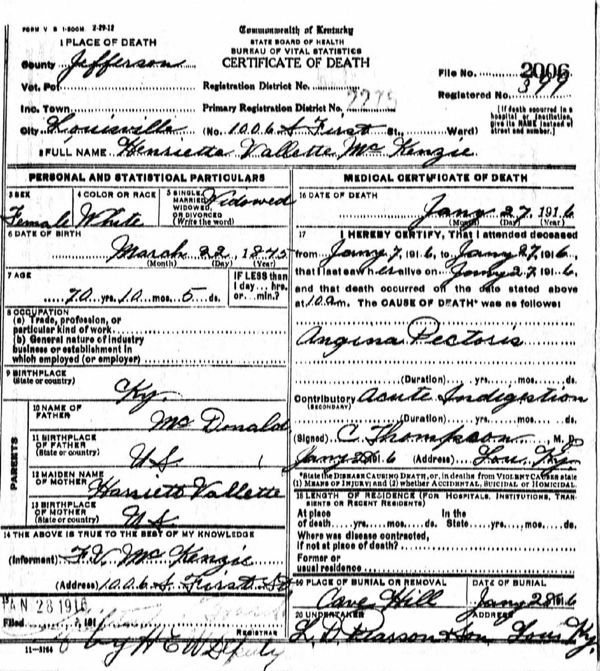 FORM V S 1-500M 2-29-12
Commonwealth of Kentucky
STATE BOARD OF HEALTH
BUREAU OF VITAL STATISTICS
CERTIFICATE OF DEATH
1 PLACE OF DEATH
County Jefferson
File No. 2006
Vot. Pct.
Registration District No.
Registered No. 399
Inc. Town
Primary Registration District No. 7775
City Louisville (No. 1006 S First St., Ward)
[If death occurred in a hospital or institution, give its NAME instead of street and number.]
2 FULL NAME Henrietta Vallette McKenzie
PERSONAL AND STATISTICAL PARTICULARS
3 SEX
Female
4 COLOR OR RACE
White
5 SINGLE, MARRIED, WIDOWED, OR DIVORCED
(Write the word)
Widowed
6 DATE OF BIRTH
March 22 1845
(Month) (Day) (Year)
7 AGE
70 yrs. 10 mos. 5 ds.
IF LESS than 1 day... hrs. or... min.?
8 OCCUPATION
(a) Trade, profession, or
particular kind of work
(b) General nature of industry
business or establishment in
which employed (or employer)
9 BIRTHPLACE
(State or country)
Ky.
PARENTS
10 NAME OF FATHER
McDonald
11 BIRTHPLACE OF FATHER
(State or country)
US
12 MAIDEN NAME OF MOTHER
Harriett Vallette
13 BIRTHPLACE OF MOTHER
(State or country)
US
14 THE ABOVE IS TRUE TO THE BEST OF MY KNOWLEDGE
(Informant) F.V. McKenzie
(Address) 1006 S. First St.
JAN 28 1916
Filed 191
by H E W Deputy
REGISTRAR
11-3164
MEDICAL CERTIFICATE OF DEATH
16 DATE OF DEATH
Jany 27, 1916
(Month) (Day) (Year)
17 I HEREBY CERTIFY, That I attended deceased
from Jany 7, 1916, to Jany 27, 1916,
that I last saw her alive on Jany 27, 1916,
and that death occurred on the date stated above
at 10 a.m. The CAUSE OF DEATH* was as follows:
Angina Pectoris
(Duration) yrs. mos. ds.
Contributory Acute Indigestion
(SECONDARY)
(Duration) yrs. mos. ds.
(Signed) C Thompson, M. D.
Jany 28 1916 (Address) Lou Ky.
*State the DISEASE CAUSING DEATH, or, in deaths from VIOLENT CAUSES state
(1) MEANS OF INJURY; and (2) whether ACCIDENTAL, SUICIDAL or HOMICIDAL.
18 LENGTH OF RESIDENCE (FOR HOSPITALS, INSTITUTIONS, TRANSIENTS OR RECENT RESIDENTS)
At place of death yrs. mos. ds. In the State yrs. mos. ds.
Where was disease contracted,
if not at place of death?
Former or
usual residence
19 PLACE OF BURIAL OR REMOVAL
Cave Hill
DATE OF BURIAL
Jany 28 1916
20 UNDERTAKER
L. D. Pearson & Son
ADDRESS
Lou Ky